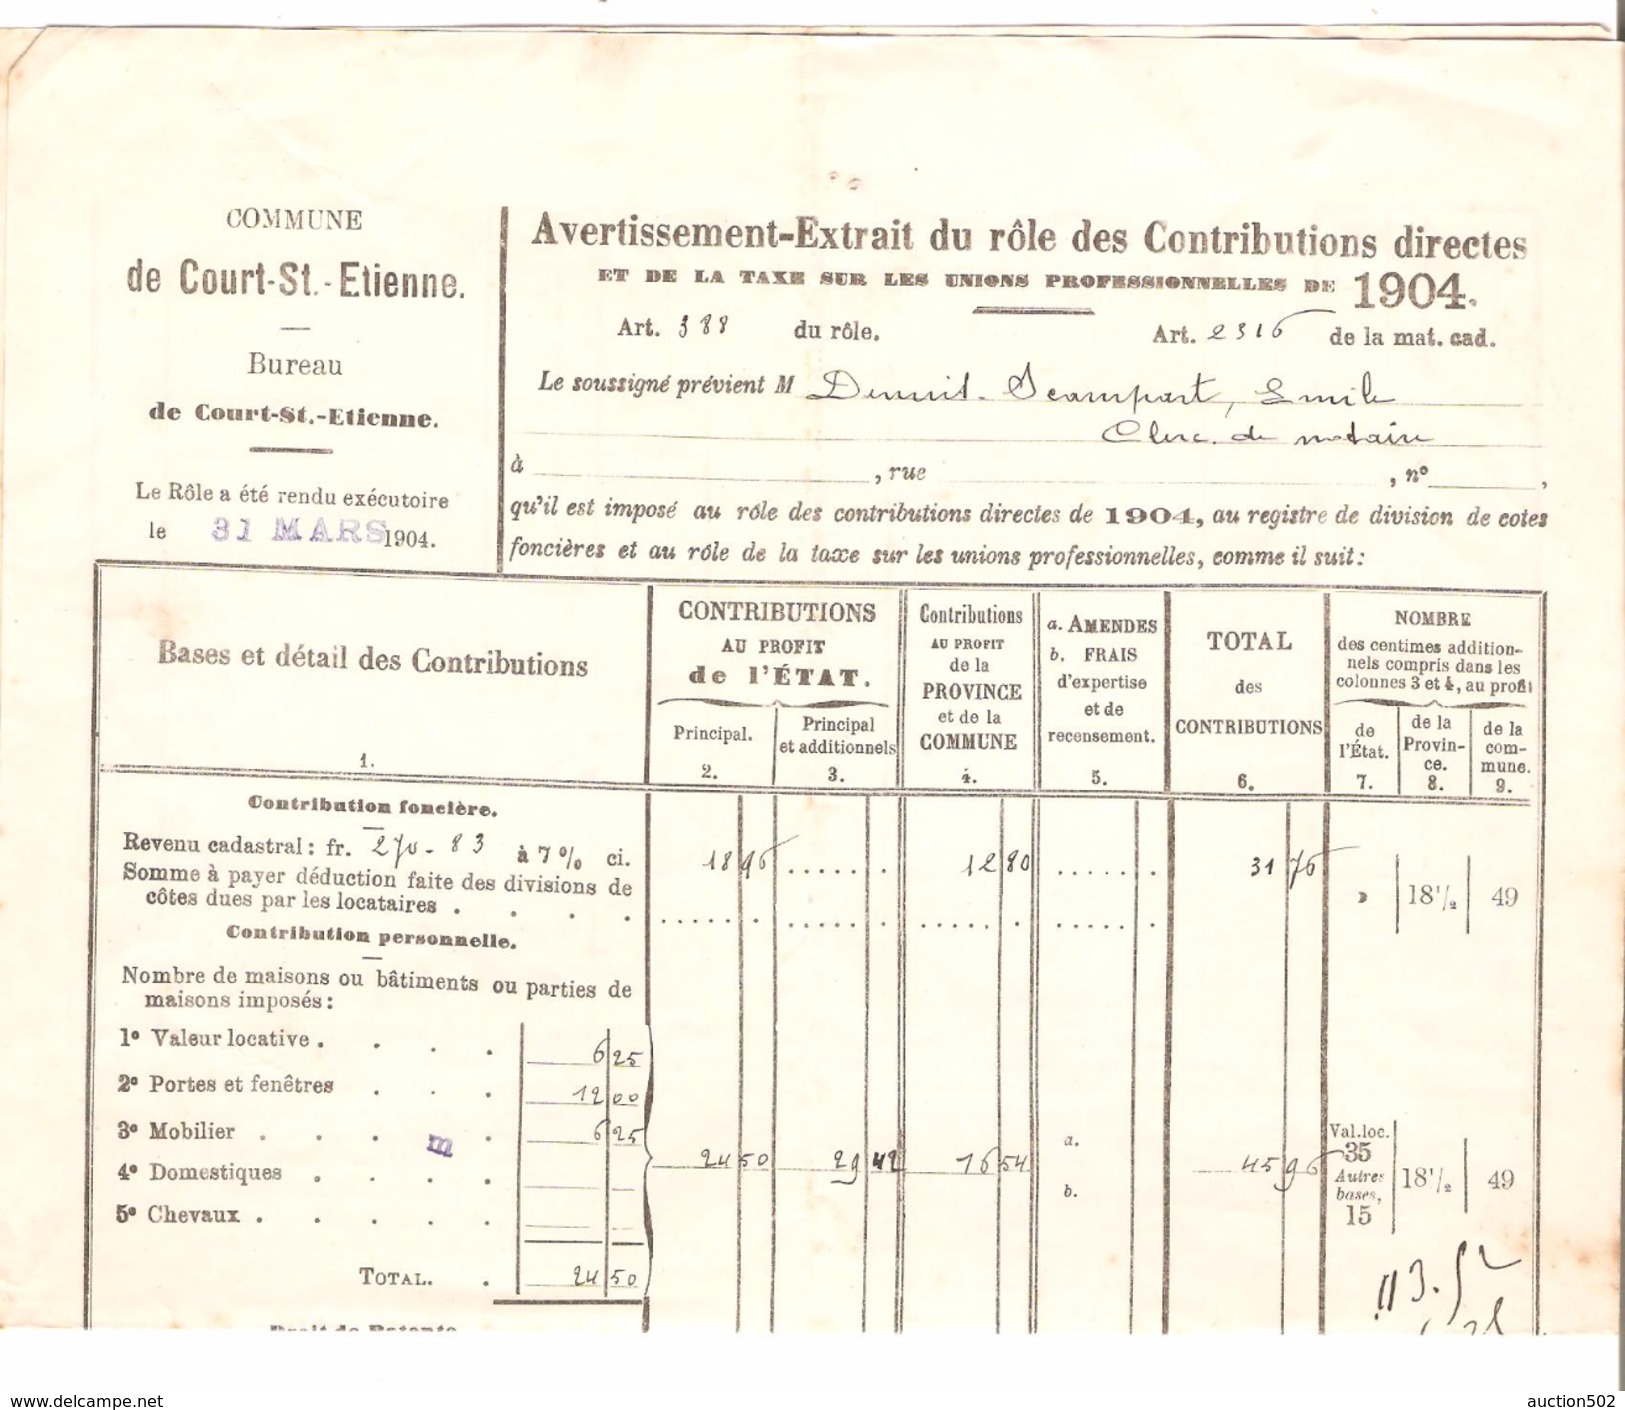 COMMUNE
de Court-St.-Etienne.
Bureau
de Court-St.-Etienne.
Le Rôle a été rendu exécutoire
le 31 MARS 1904.
Avertissement-Extrait du rôle des Contributions directes
ET DE LA TAXE SUR LES UNIONS PROFESSIONNELLES DE 1904.
Art. 388 du rôle. Art. 2316 de la mat. cad.
Le soussigné prévient M Emile
Clerc de notaire
à , rue , n° ,
qu'il est imposé au rôle des contributions directes de 1904, au registre de division de cotes
foncières et au rôle de la taxe sur les unions professionnelles, comme il suit:
Bases et détail des Contributions
1.
CONTRIBUTIONS
AU PROFIT
de l'ÉTAT.
Principal.
2.
Principal
et additionnels
3.
Contributions
AU PROFIT
de la
PROVINCE
et de la
COMMUNE
4.
a. AMENDES
b. FRAIS
d'expertise
et de
recensement.
5.
TOTAL
des
CONTRIBUTIONS
6.
NOMBRE
des centimes addition-
nels compris dans les
colonnes 3 et 4, au profit
de
l'État.
7.
de la
Provin-
ce.
8.
de la
com-
mune.
9.
Contribution foncière.
Revenu cadastral: fr. 270-83 à 7% ci. 18 96 12 80 31 76
Somme à payer déduction faite des divisions de
côtes dues par les locataires . . . . » 18 1/2 49
Contribution personnelle.
Nombre de maisons ou bâtiments ou parties de
maisons imposés:
1° Valeur locative . . . . 6 25
2° Portes et fenêtres . . . 12 00
3° Mobilier . . . m . 6 25
4° Domestiques . . . .
5° Chevaux . . . . .
TOTAL. . 24 50
24 50 29 42 16 54 a. b. 45 96
Val. loc.
35
Autres
bases,
15
18 1/2 49
113.52
Droit de Patente
delcampe.net
auction502